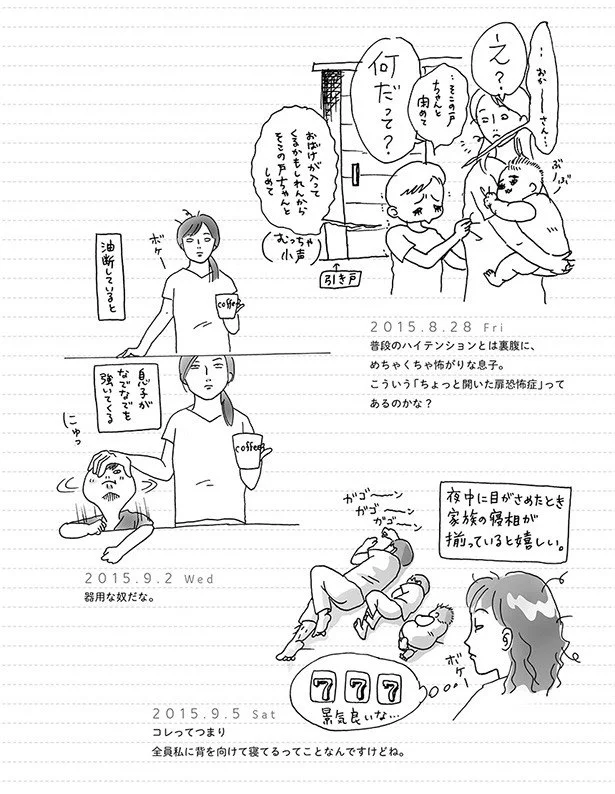 …おか〜〜さん…
え?
…そこの戸
ちゃんと
閉めて
何だって?
おばけが入って
くるかもしれんから
そこの戸ちゃんと
しめて
(むっちゃ
小声)
引き戸
ぶーっ
ぶー
2015.8.28 Fri
普段のハイテンションとは裏腹に、
めちゃくちゃ怖がりな息子。
こういう「ちょっと開いた扉恐怖症」って
あるのかな?
油断していると
ボケー
coffee
息子が
なでなでを
強いてくる
にゅっ
coffee
2015.9.2 Wed
器用な奴だな。
夜中に目がさめたとき
家族の寝相が
揃っていると嬉しい。
ガゴ〜〜ン
ガゴ〜〜ン
ガゴ〜ン
ボケー
7 7 7
景気良いな…
2015.9.5 Sat
コレってつまり
全員私に背を向けて寝てるってことなんですけどね。